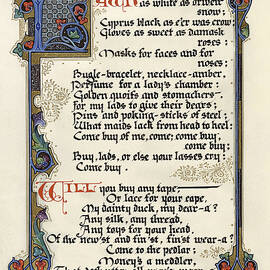 LAWN as white as driven
snow;
Cyprus black as e'er was crow;
Gloves as sweet as damask
roses;
Masks for faces and for
noses;
Bugle-bracelet, necklace-amber,
Perfume for a lady's chamber;
Golden quoifs and stomachers
For my lads to give their dears;
Pins and poking-sticks of steel;
What maids lack from head to heel;
Come buy of me, come; come buy,
come buy;
Buy, lads, or else your lasses cry;
Come buy.
WILL you buy any tape,
Or lace for your cape,
My dainty duck, my dear-a?
Any silk, any thread,
Any toys for your head,
Of the new'st and fin'st, fin'st wear-a?
Come to the pedlar;
Money's a meddler,